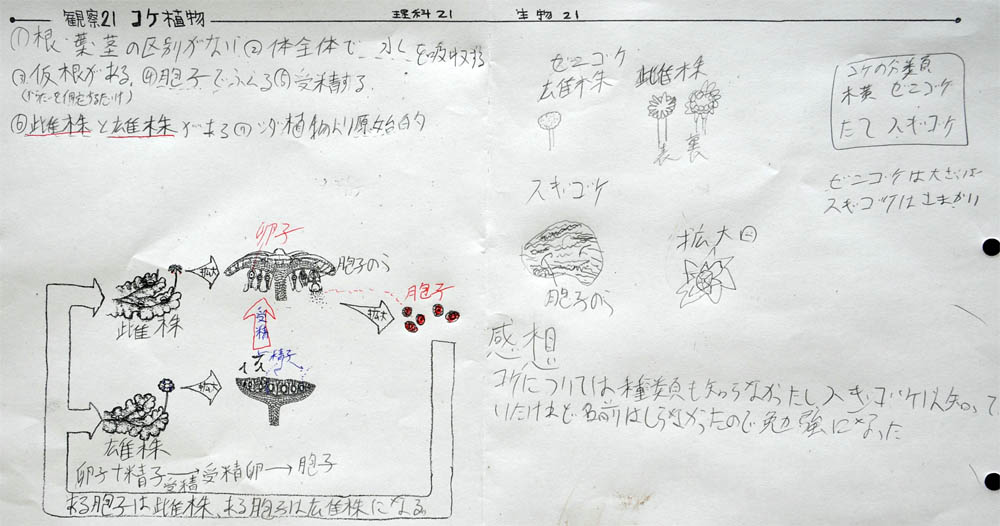 観察21 コケ植物
理科21
生物21
(1)根・葉・茎の区別がない(2)体全体で、水を吸収する
(3)仮根がある。(4)胞子でふえる(5)受精する
(6)雌株と雄株がある(7)シダ植物より原始的
ゼニゴケ
雄株
雌株
表 裏
コケの分類
ゼニゴケ
たて スギゴケ
ゼニゴケは大きい
スギゴケはこまかい
スギゴケ
胞子のう
拡大図
卵子
胞子のう
拡大
受精
胞子
拡大
雌株
精子
拡大
雄株
卵子+精子→受精卵→胞子
受精
ある胞子は雌株、ある胞子は雄株になる。
感想
コケについては種類も知らなかったし
いたけれど名前はしらなかったので勉強になった